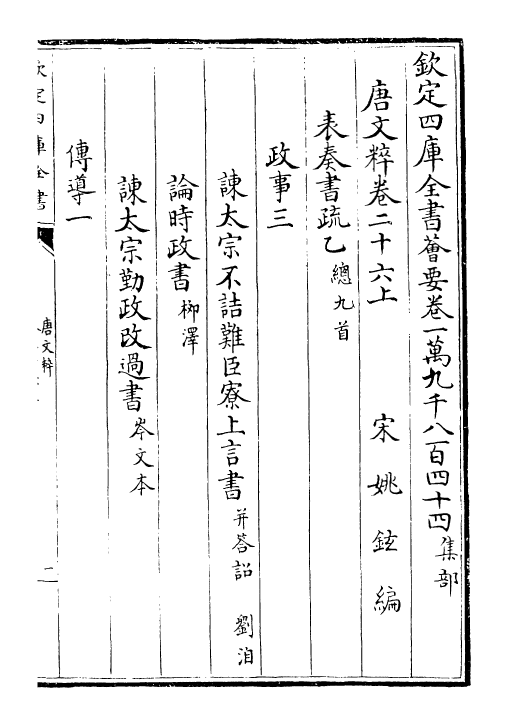 欽定四庫全書薈要卷一萬九千八百四十四集部
唐文粹卷二十六上 宋 姚鉉 編
表奏書疏乙總九首
政事三
諫太宗不詰難臣寮上言書并答詔 劉洎
論時政書柳澤
諫太宗勤政改過書岑文本
傳導一
欽定四庫全書
唐文粹